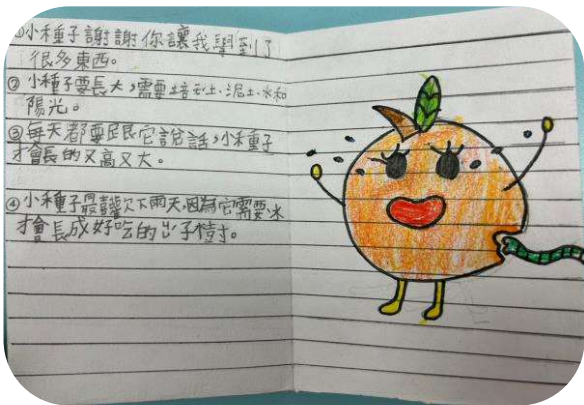 ①小種子謝謝你讓我學到了
很多東西。
②小種子要長大，需要培土、泥土、水和
陽光。
③每天都要跟它說話，小種子
才會長的又高又大。
④小種子最喜歡下雨天，因為它需要水
才會長成好吃的ㄓ子樹。